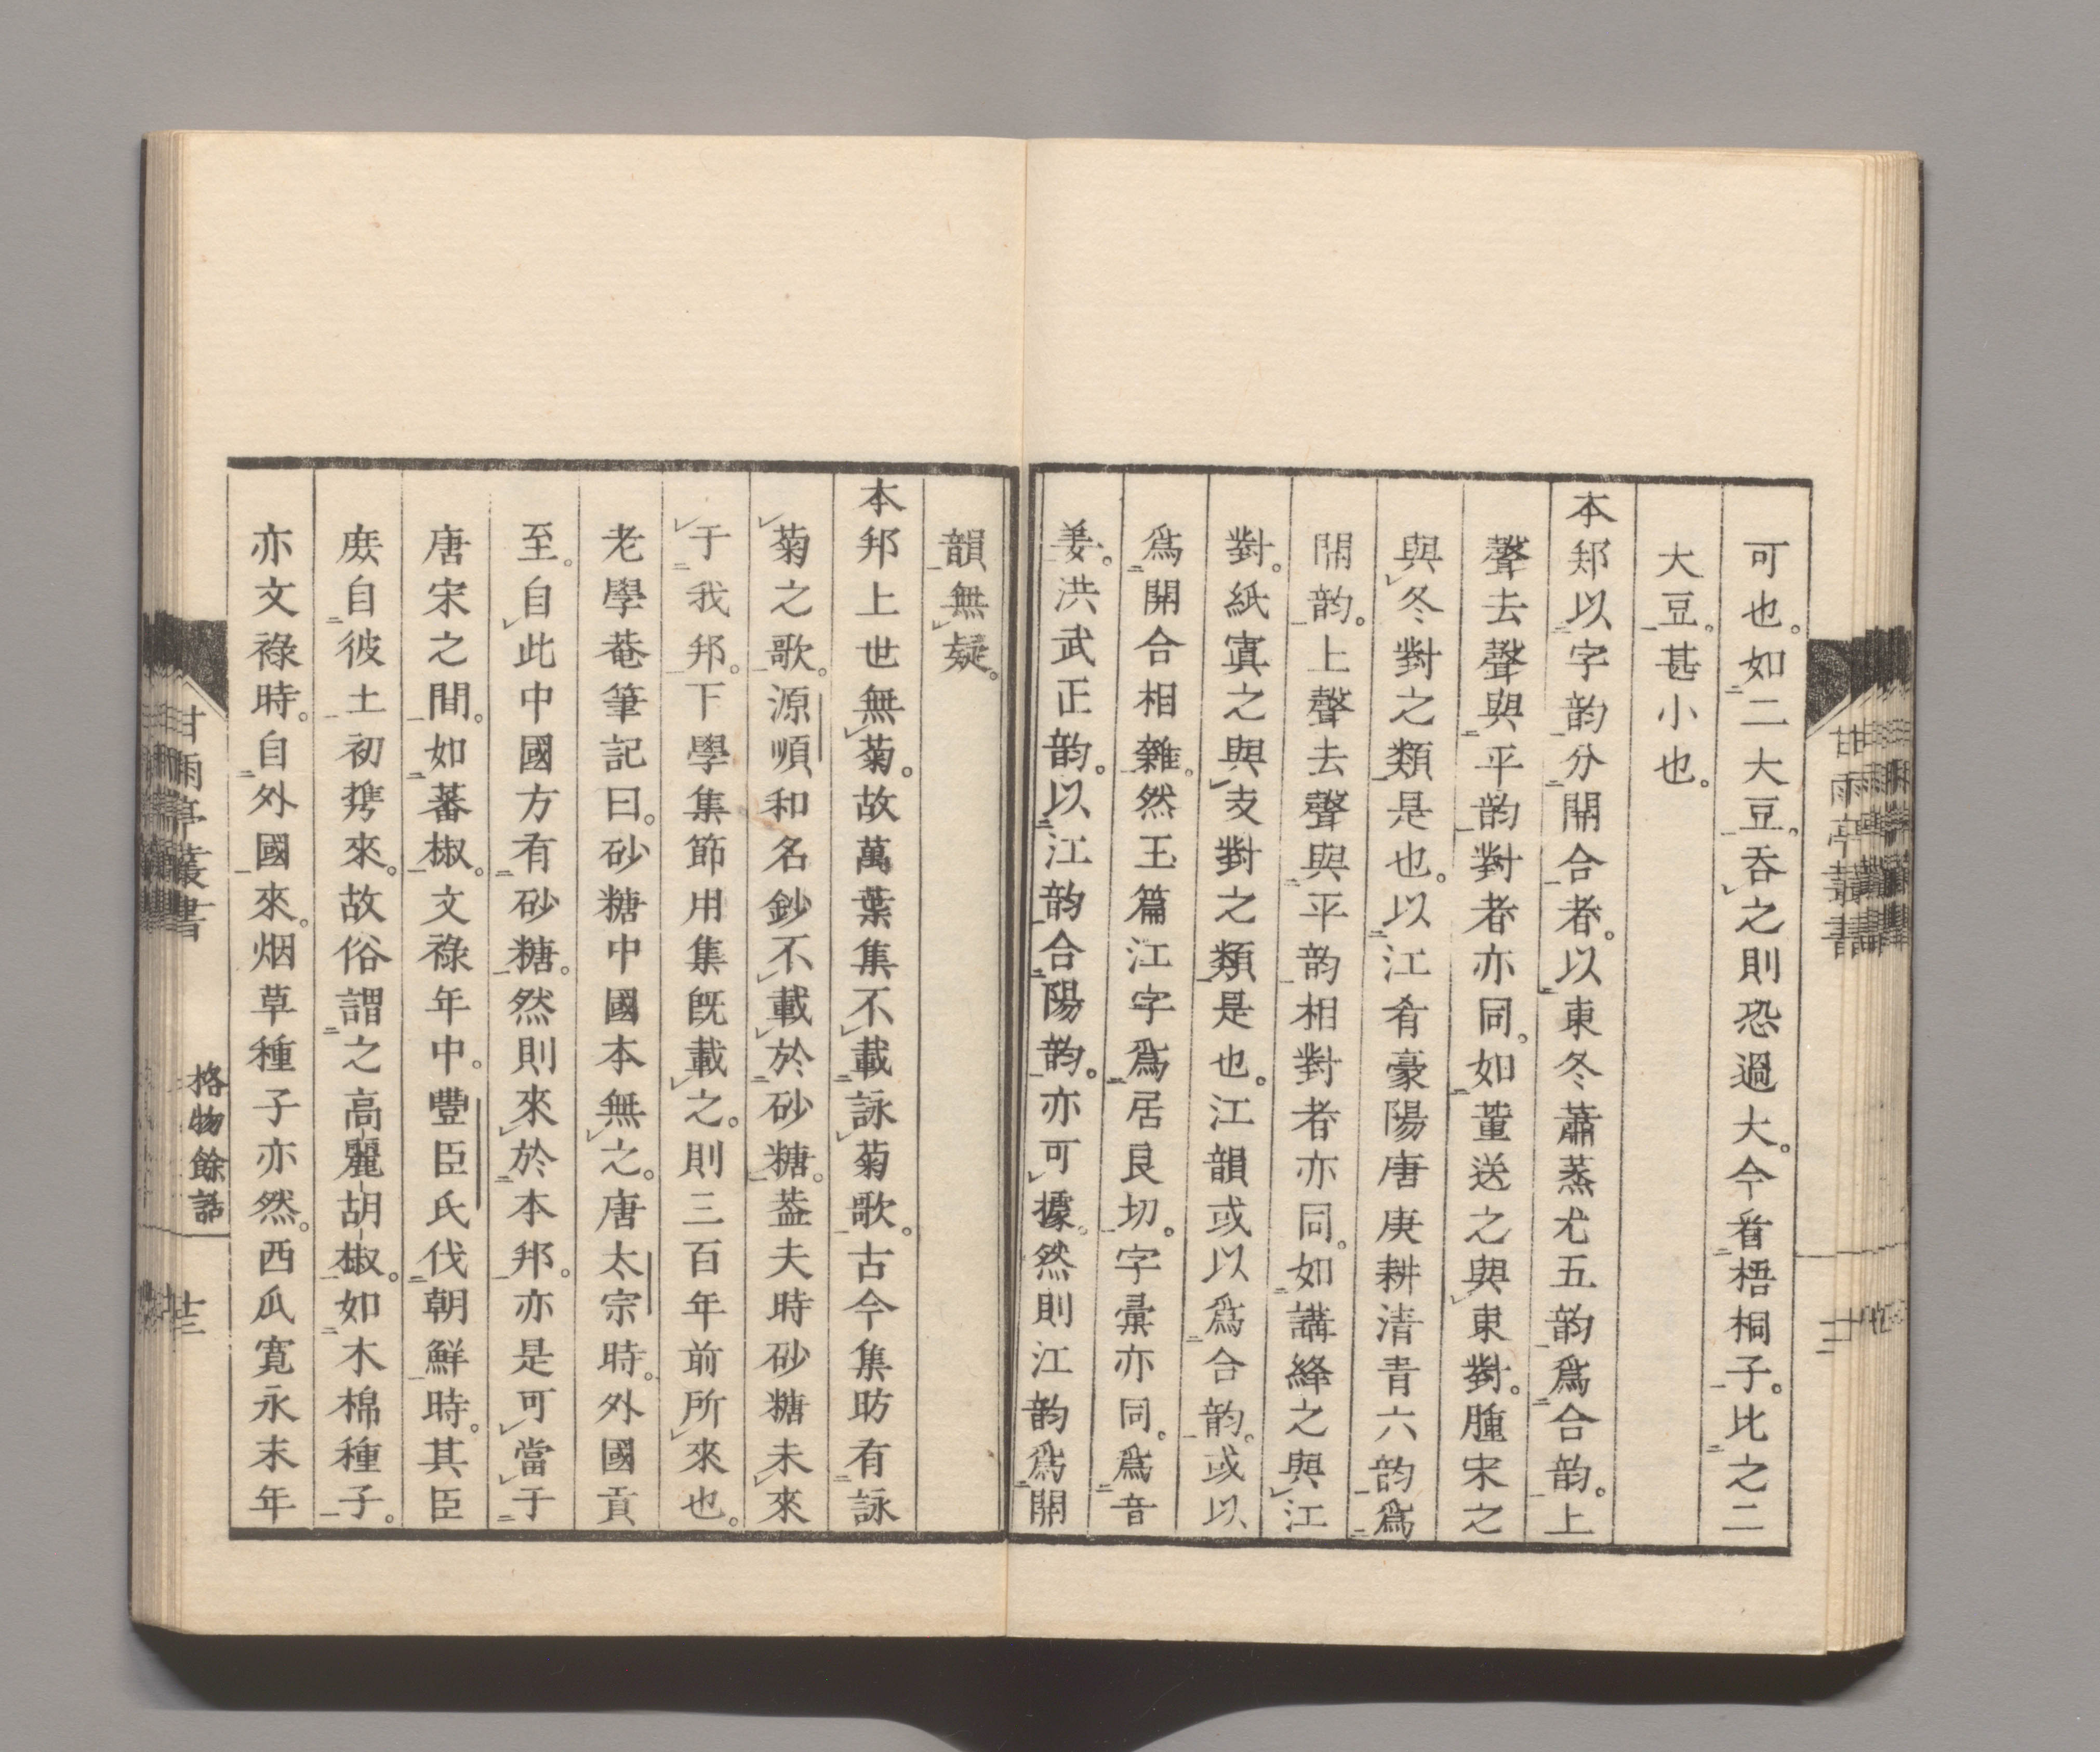 可也。如二大豆。吞之則恐過大。今看梧桐子。比之二
大豆。甚小也。
本邦以字韵分開合者。以東冬蕭蒸尤五韵爲合韵。上
聲去聲與平韵對者亦同。如董送之與東對。腫宋之
與冬對之類是也。以江肴豪陽唐庚耕清青六韵爲
開韵。上聲去聲與平韵相對者亦同。如講絳之與江
對。紙寘之與支對之類是也。江韻或以爲合韵。或以
爲開合相雜。然玉篇江字爲居良切。字彙亦同。爲音
姜。洪武正韵。以江韵合陽韵。亦可據。然則江韵爲開
韻無疑。
本邦上世無菊。故萬葉集不載詠菊歌。古今集昉有詠
菊之歌。源順和名鈔不載於砂糖。葢夫時砂糖未來
于我邦。下學集節用集既載之。則三百年前所來也。
老學菴筆記曰。砂糖中國本無之。唐太宗時。外國貢
至。自此中國方有砂糖。然則來於本邦。亦是可當于
唐宋之間。如蕃椒。文祿年中。豐臣氏伐朝鮮時。其臣
庶自彼土初携來。故俗謂之高麗胡椒。如木棉種子。
亦文祿時。自外國來。烟草種子亦然。西瓜寬永末年
甘雨亭叢書
格物餘話
十三
甘雨亭叢書